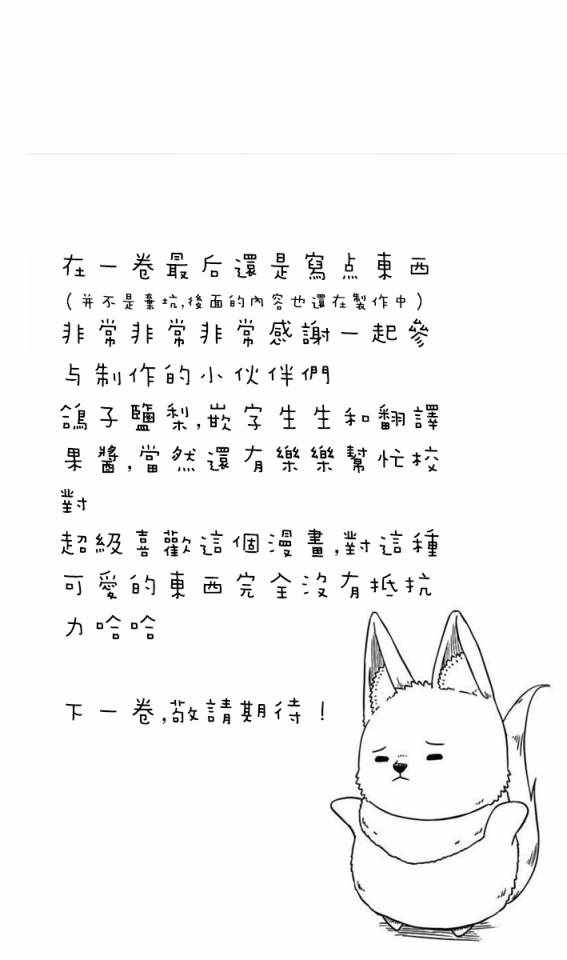 在一卷最后還是寫点東西
(并不是棄坑,後面的內容也還在製作中)
非常非常非常感謝一起參
与制作的小伙伴們
鴿子鹽梨,嵌字生生和翻譯
果醬,當然還有樂樂幫忙校
對
超級喜歡這個漫畫,對這種
可愛的東西完全沒有抵抗
力哈哈
下一卷,敬請期待！